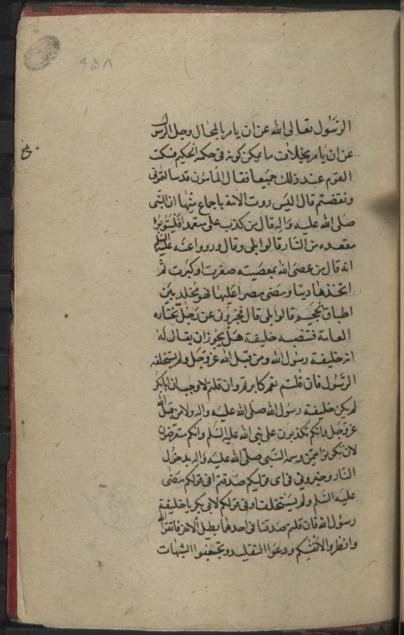 ٩٥٨
الرسول تعالى الله عن ان يامر بالمحال وجل الرسول
عن ان يامر بخلاف ما يمكن كونه في حكمة الحكيم فسكت
القوم عند ذلك جميعا فقال المامون قد سالتموني
ونقضتم قال اليس روت الامة باجماع منها ان النبي
صلى الله عليه واله قال من كذب على متعمدا فليتبوء
مقعده من النار قالوا بلى وقال ورووا عنه عليه السلم
انه قال من عصى الله بمعصية صغرت او كبرت ثم
اتخذها دينا ومضى مصرا عليها فهو مخلد بين
اطباق الجحيم قالوا بلى قال فخبروني عن رجل تختاره
العامة فتنصبه خليفة هل يجوز ان يقال له
انه خليفة رسول الله ومن قبل الله عز وجل ولم يستخلفه
الرسول فان قلتم نعم كابرتم وان قلتم لا وجب ان ابابكر
لم يكن خليفة رسول الله صلى الله عليه واله ولا من قبل الله
عز وجل وانكم تكذبون على نبي الله عليه السلم وانكم متعرضون
لان تكونوا ممن وسمه النبي صلى الله عليه واله بدخول
النار وخبروني في اى قوليكم صدقتم افي قولكم مضى
عليه السلم ولم يستخلف او في قولكم لابي بكر يا خليفة
رسول الله فان كنتم صدقتم في احدهما بطل الاخر فاتقوا الله
وانظروا لانفسكم ودعوا التقليد وتجنبوا الشبهات